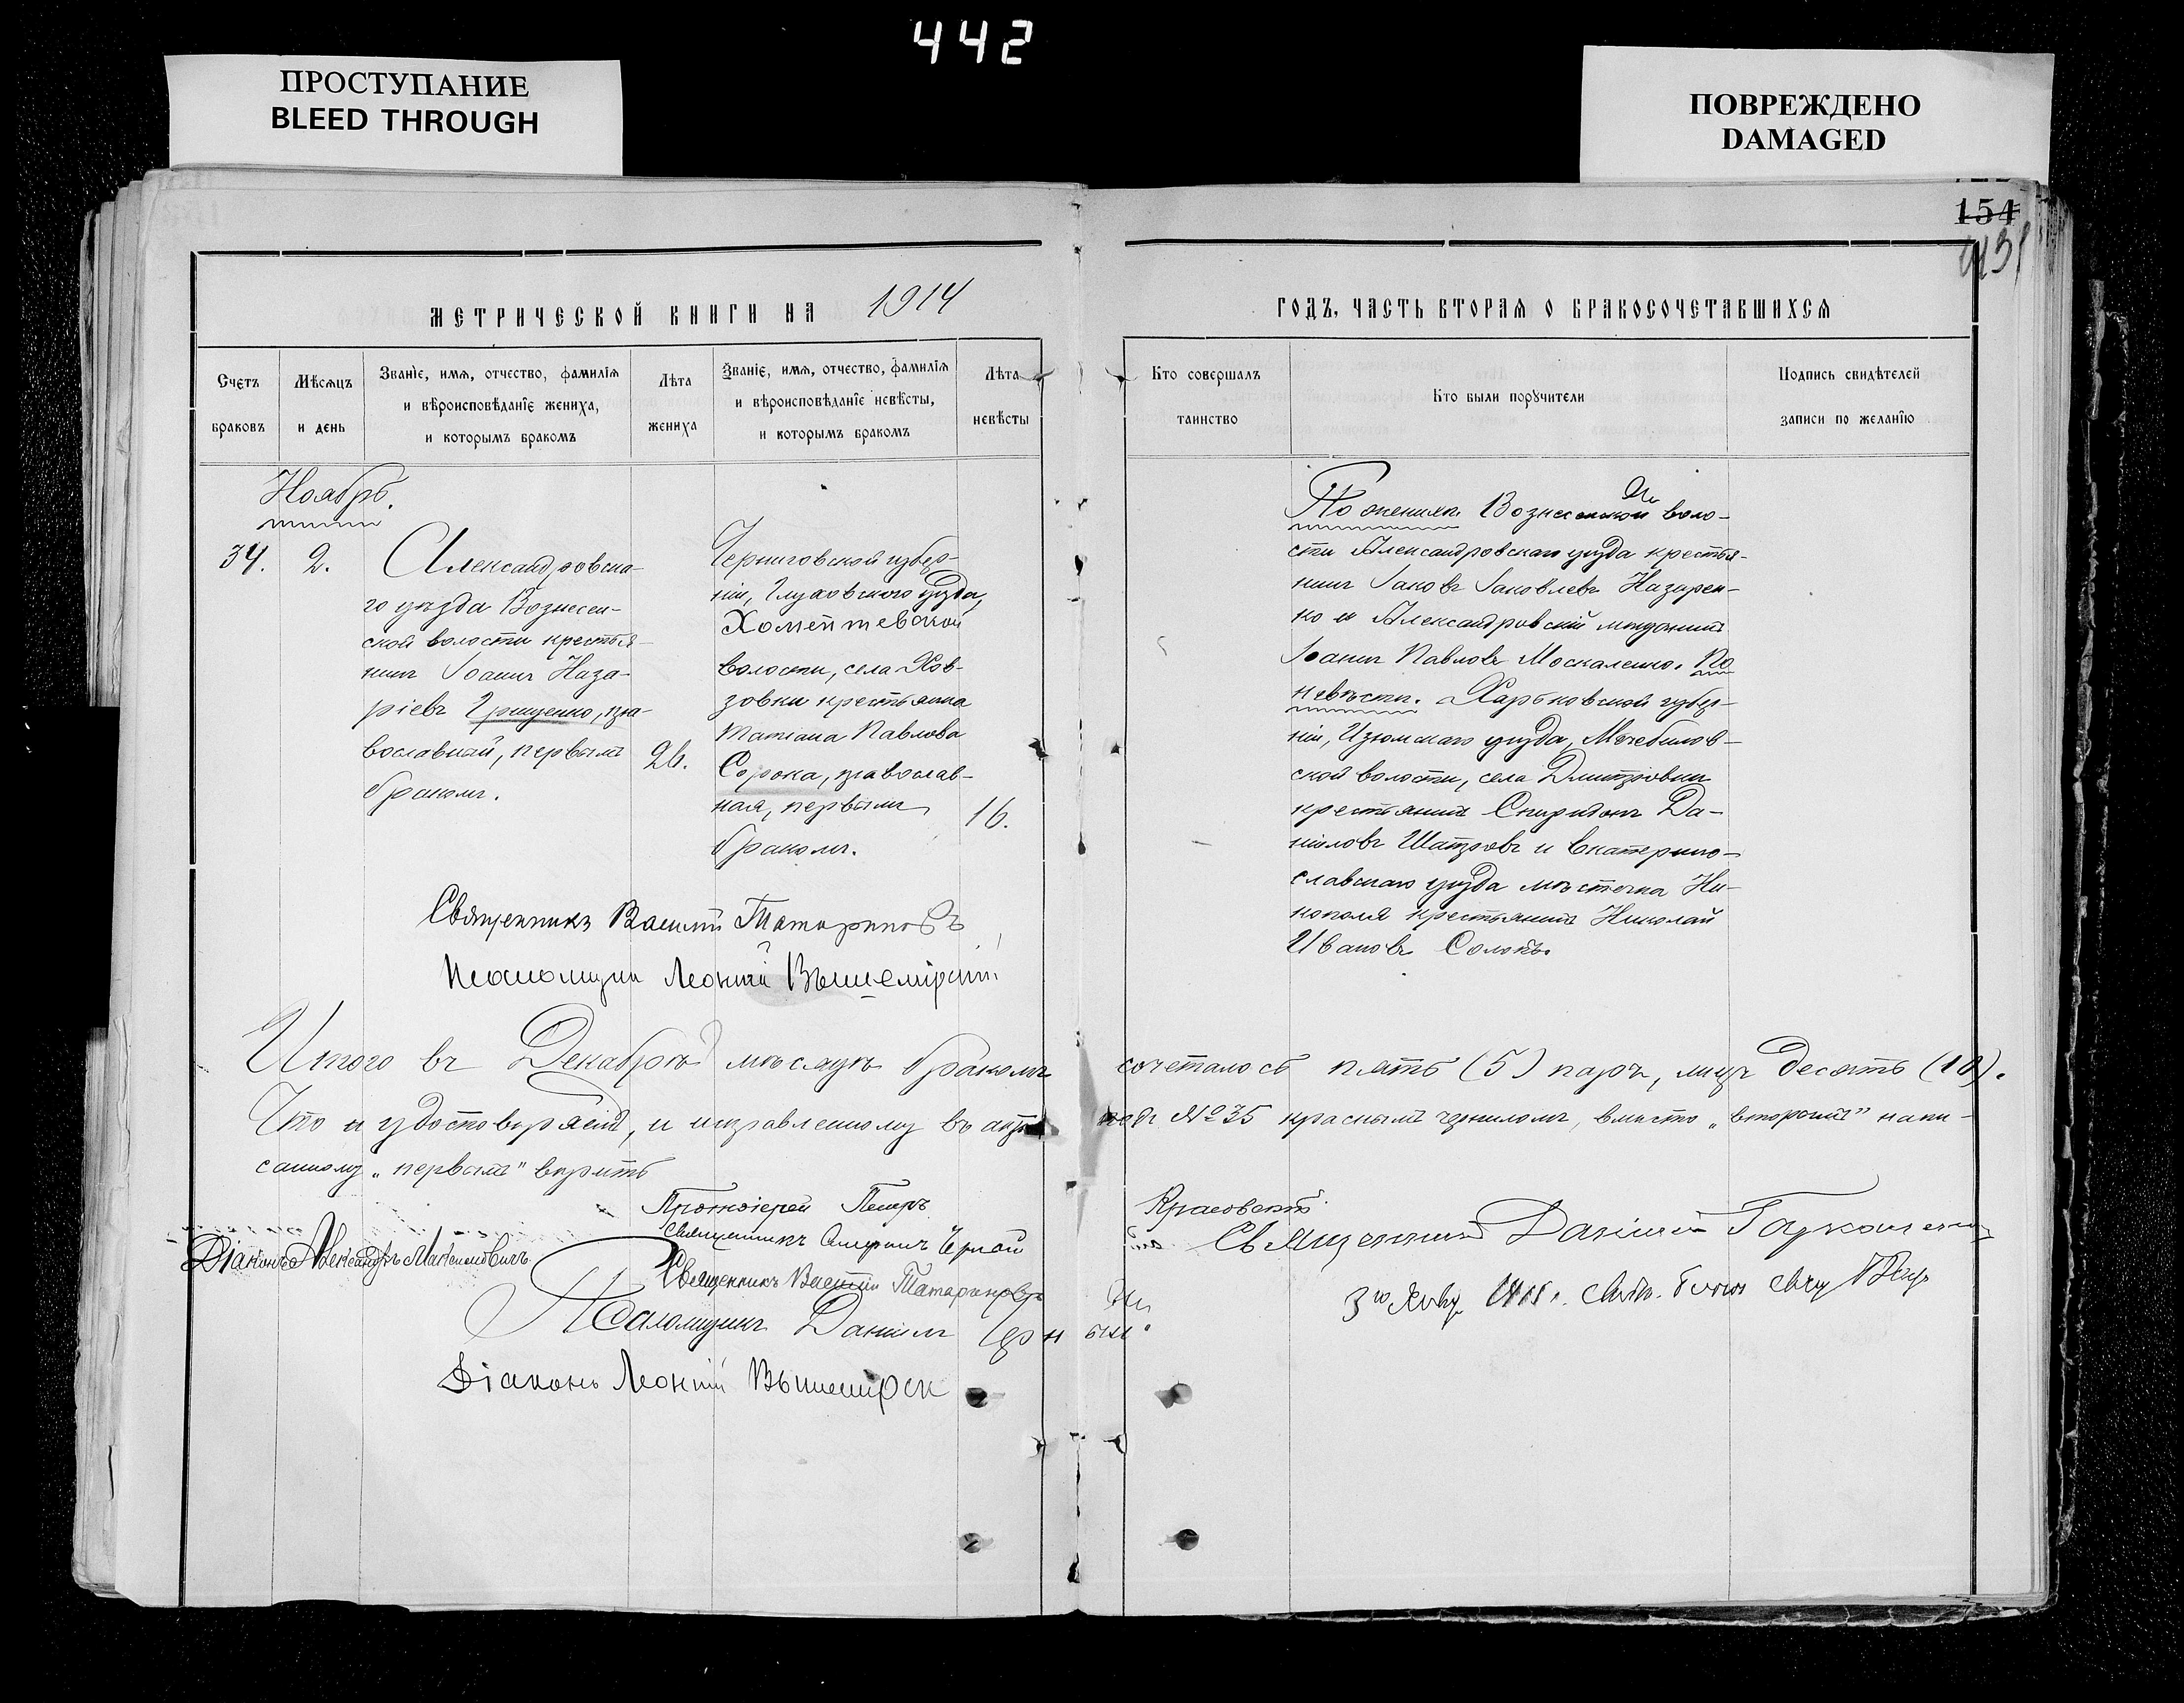 442
ПРОСТУПАНИЕ
BLEED THROUGH
ПОВРЕЖДЕНО
DAMAGED
154
МЕТРИЧЕСКОЙ КНИГИ НА 1914
ГОДЪ, ЧАСТЬ ВТОРАЯ О БРАКОСОЧЕТАВШИХСЯ
Счетъ
браковъ
Мѣсяцъ
и день
Званіе, имя, отчество, фамилія
и вѣроисповѣданіе жениха,
и которымъ бракомъ
Лѣта
жениха
Званіе, имя, отчество, фамилія
и вѣроисповѣданіе невѣсты,
и которымъ бракомъ
Лѣта
невѣсты
Кто совершалъ
таинство
Кто были поручители
Подпись свидѣтелей
записи по желанію
Ноябрь.
34.
2.
Александровска-
го уѣзда Вознесен-
ской волости крестья-
нинъ Іоаннъ Наза-
ріевъ Грищенко, пра-
вославный, первымъ
бракомъ.
26.
Черниговской губер-
ніи, Глуховского уѣзда,
волости, села
крестьянка
Татіана Павлова
Сорока, православ-
ная, первымъ
бракомъ.
16.
По женихѣ Вознесенской воло-
сти Александровскаго уѣзда крестья-
нинъ Іаковъ Іаковлевъ Назарен-
ко и Александровскій мѣщанинъ
Іоаннъ Павловъ Москаленко. По
невѣстѣ. Харьковской губер-
ніи, Изюмскаго уѣзда, Мечебилов-
ской волости, села Дмитровки
крестьянинъ Спиридонъ Да-
ніиловъ Шатровъ и Екатерино-
славскаго уѣзда мѣстечка Ни-
кополя крестьянинъ Николай
Ивановъ
Священникъ Василій Татариновъ
Псаломщикъ Леонтій
Итого въ Декабрѣ мѣсяцѣ бракомъ сочеталось пять (5) паръ, лицъ десять (10).
Что и удостовѣряемъ, и исправленному въ актѣ подъ № 35 краснымъ черниломъ, вмѣсто „вторымъ" напи-
санному „первымъ" вѣрить
Протоіерей Петръ Красовскій
Священникъ Черный
Священникъ Даніилъ
Діаконъ Александръ Максимовичъ
Священникъ Василій Татариновъ
Псаломщикъ Даніилъ
Діаконъ Леонтій